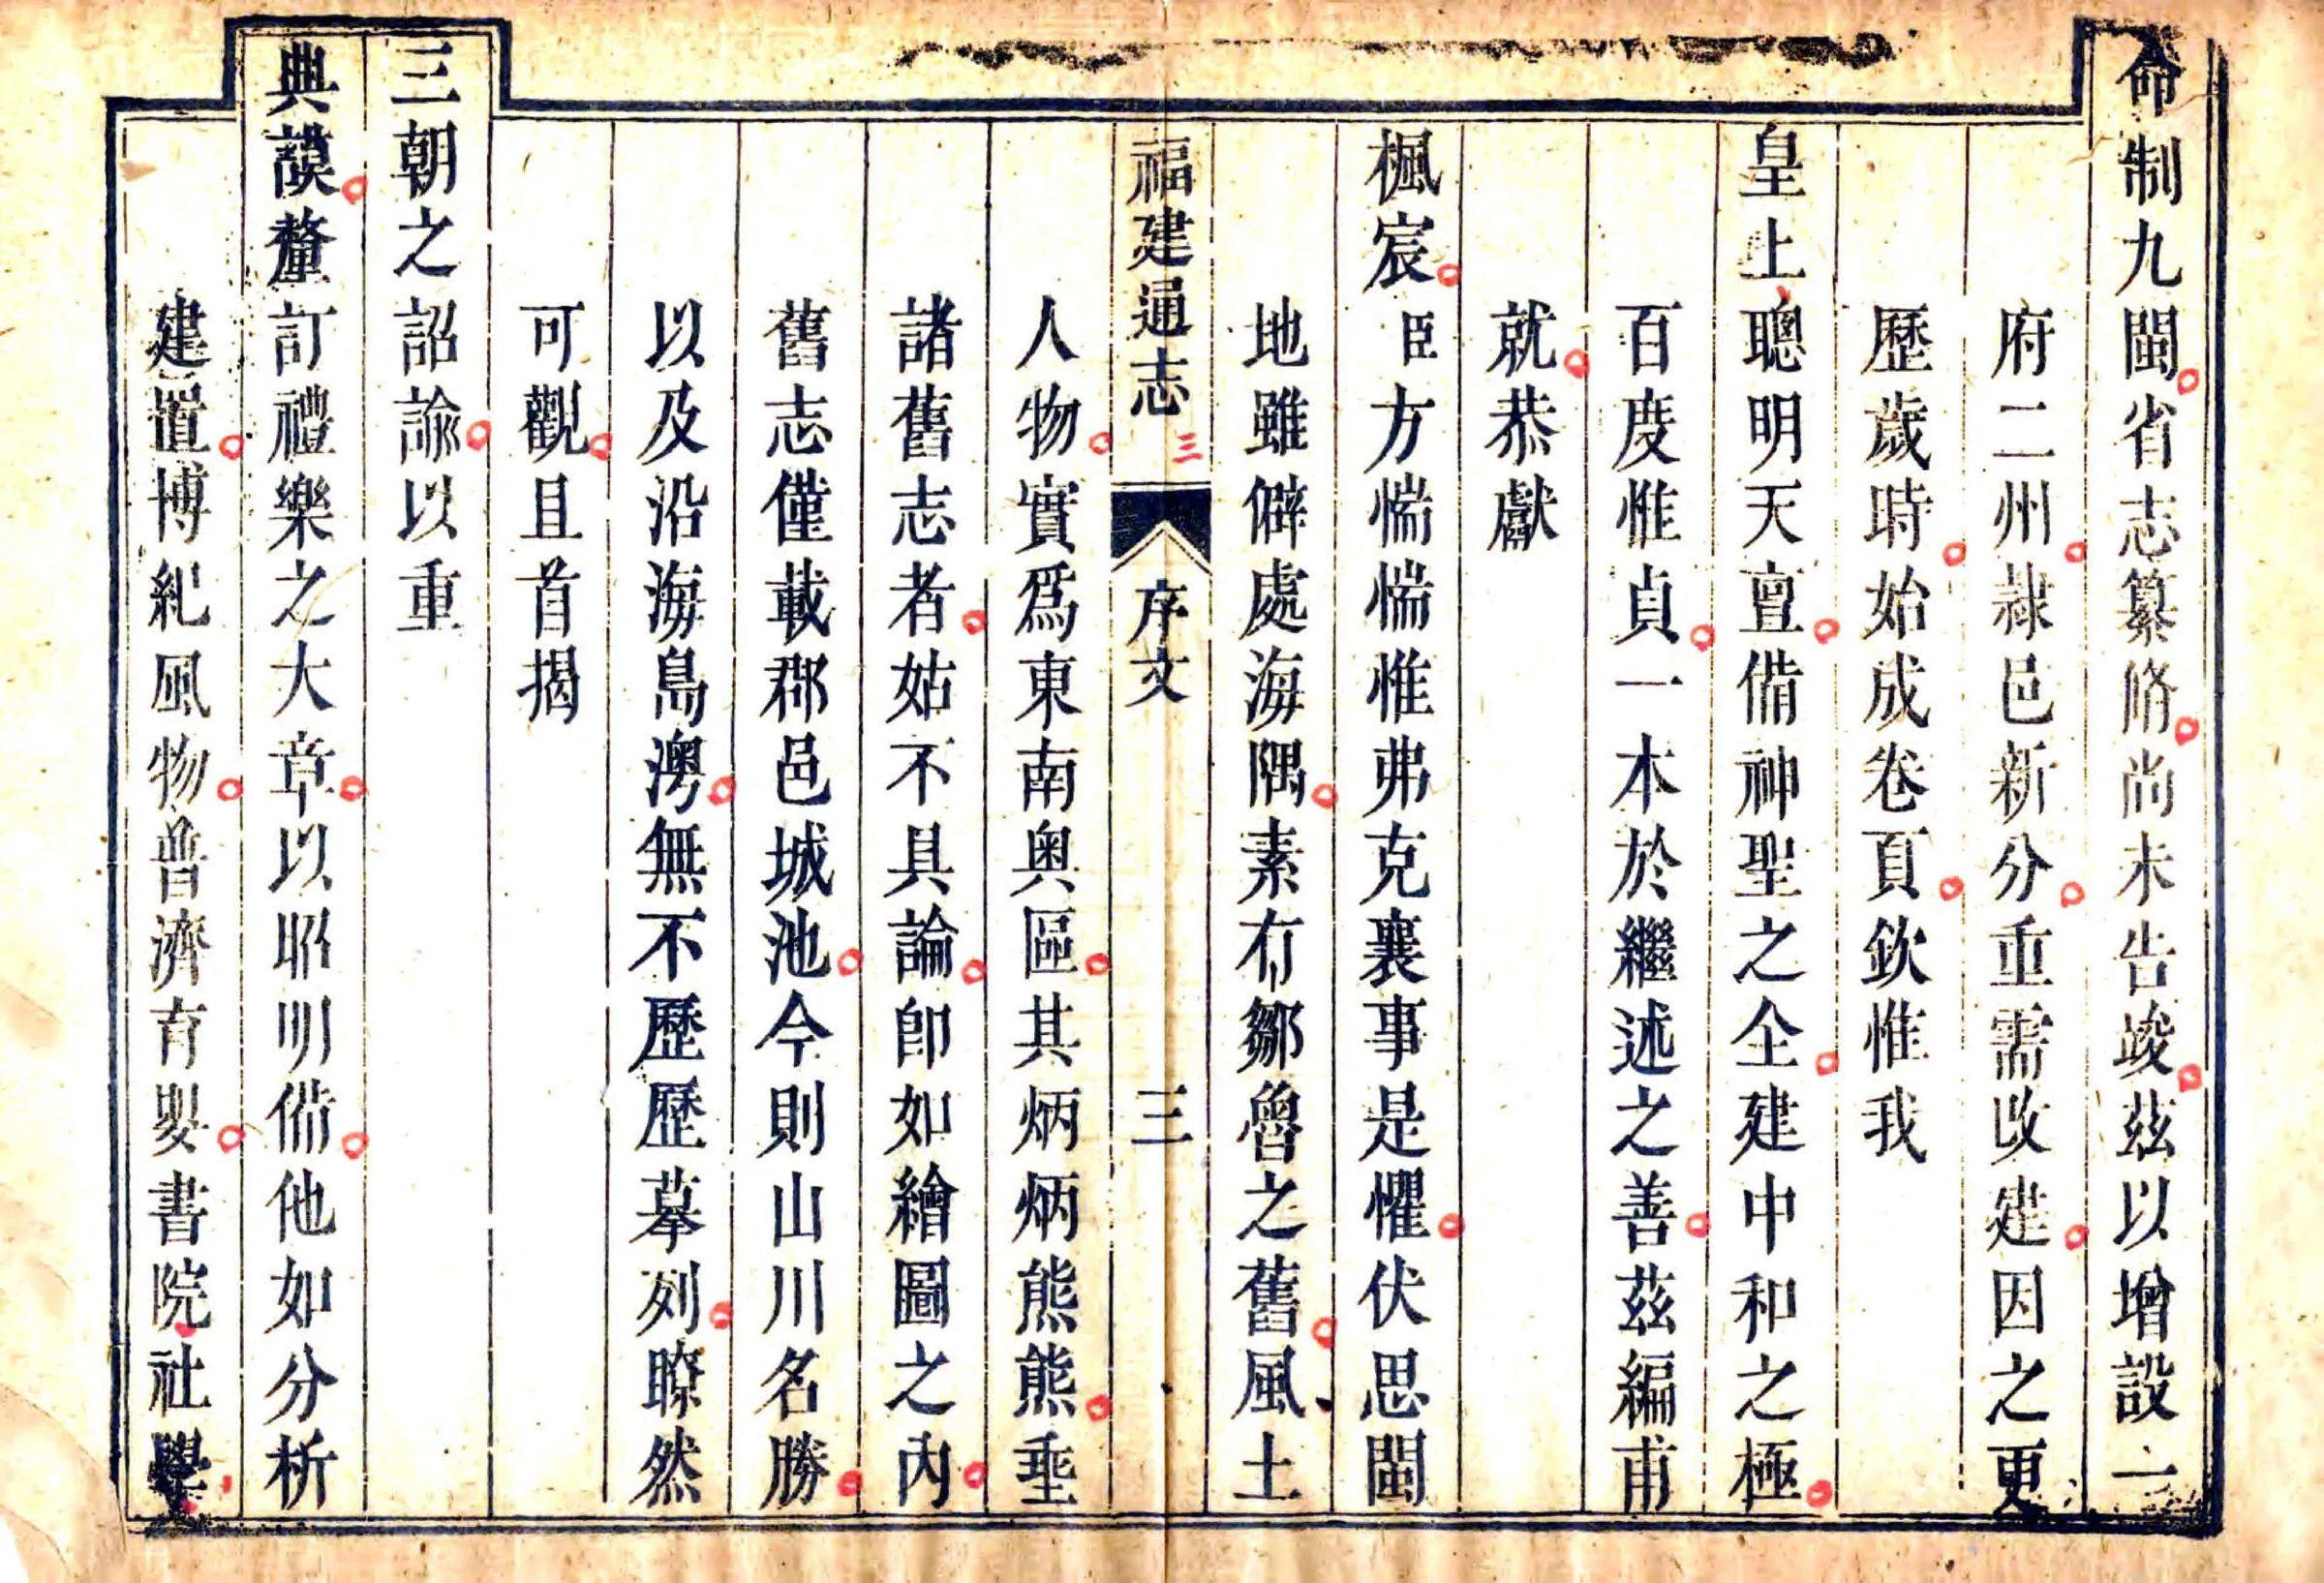 命制九閩省志纂脩尚未告竣茲以增設一
府二州隷邑新分重需改建因之更
歷歲時始成卷頁欽惟我
皇上聰明天亶備神聖之全建中和之極
百度惟貞一本於繼述之善茲編甫
就恭獻
楓宸臣方惴惴惟弗克襄事是懼伏思閩
地雖僻處海隅素有鄒魯之舊風土
福建通志 三 序文 三
人物實爲東南奥區其炳炳熊熊垂
諸舊志者姑不具論卽如繪圖之內
舊志僅載郡邑城池今則山川名勝
以及沿海島澳無不歷歷摹列瞭然
可觀且首揭
三朝之詔諭以重
典謨釐訂禮樂之大章以昭明備他如分析
建置博紀風物普濟育嬰書院社學